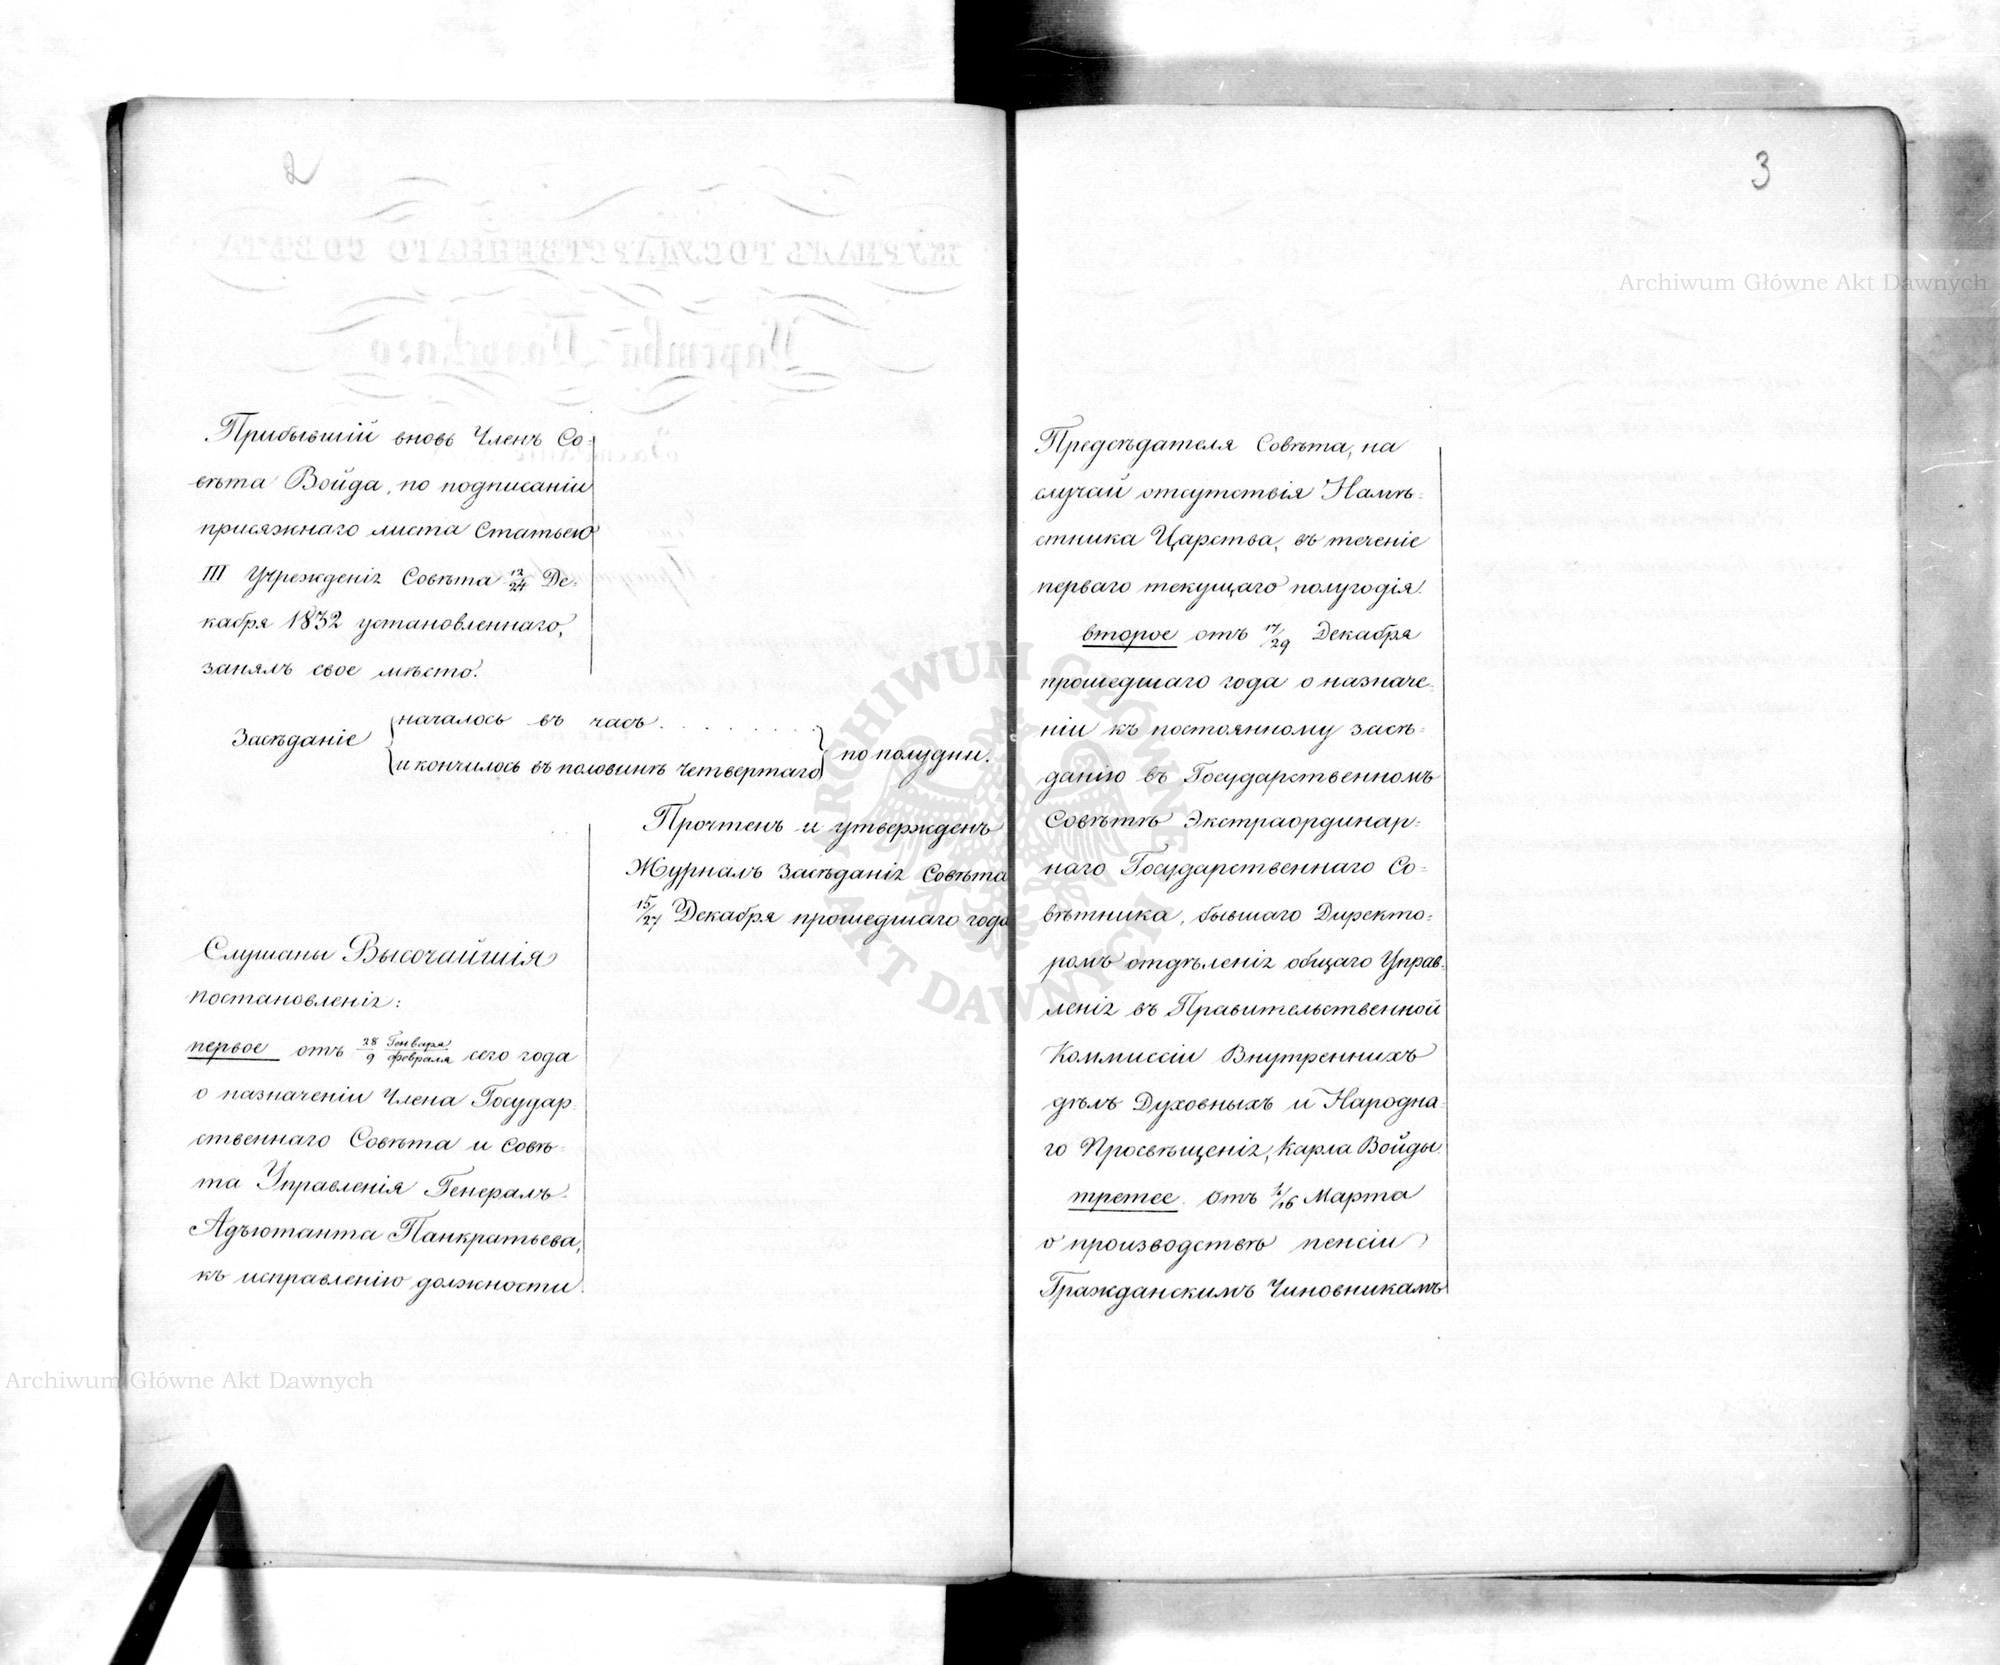 2
Прибывшій вновь Членъ Со-
вѣта Войда, по подписаніи
присяжнаго листа Статьею
III Учрежденія Совѣта 12/24 Де-
кабря 1832 установленнаго,
занялъ свое мѣсто.
Засѣданіе { началось въ часъ . . . . . . .
и кончилось въ половинѣ четвертаго } по полудни.
Прочтенъ и утвержденъ
Журналъ Засѣданія Совѣта
15/27 Декабря прошедшаго года
Слушаны Высочайшія
постановленія:
первое отъ 28 Генваря/9 Февраля сего года
о назначеніи Члена Государ-
ственнаго Совѣта и Совѣ-
та Управленія Генералъ-
Адъютанта Панкратьева,
къ исправленію должности
3
Предсѣдателя Совѣта, на
случай отсутствія Намѣ-
стника Царства, въ теченіе
перваго текущаго полугодія.
второе отъ 17/29 Декабря
прошедшаго года о назначе-
ніи къ постоянному засѣ-
данію въ Государственномъ
Совѣтѣ Экстраординар-
наго Государственнаго Со-
вѣтника, бывшаго Директо-
ромъ отдѣленія общаго Управ-
ленія въ Правительственной
Коммиссіи Внутреннихъ
дѣлъ Духовныхъ и Народна-
го Просвѣщенія, Карла Войды.
третее. отъ /16 Марта
о производствѣ пенсіи
Гражданскимъ Чиновникамъ
Archiwum Główne Akt Dawnych
Archiwum Główne Akt Dawnych
ARCHIWUM GŁÓWNE AKT DAWNYCH